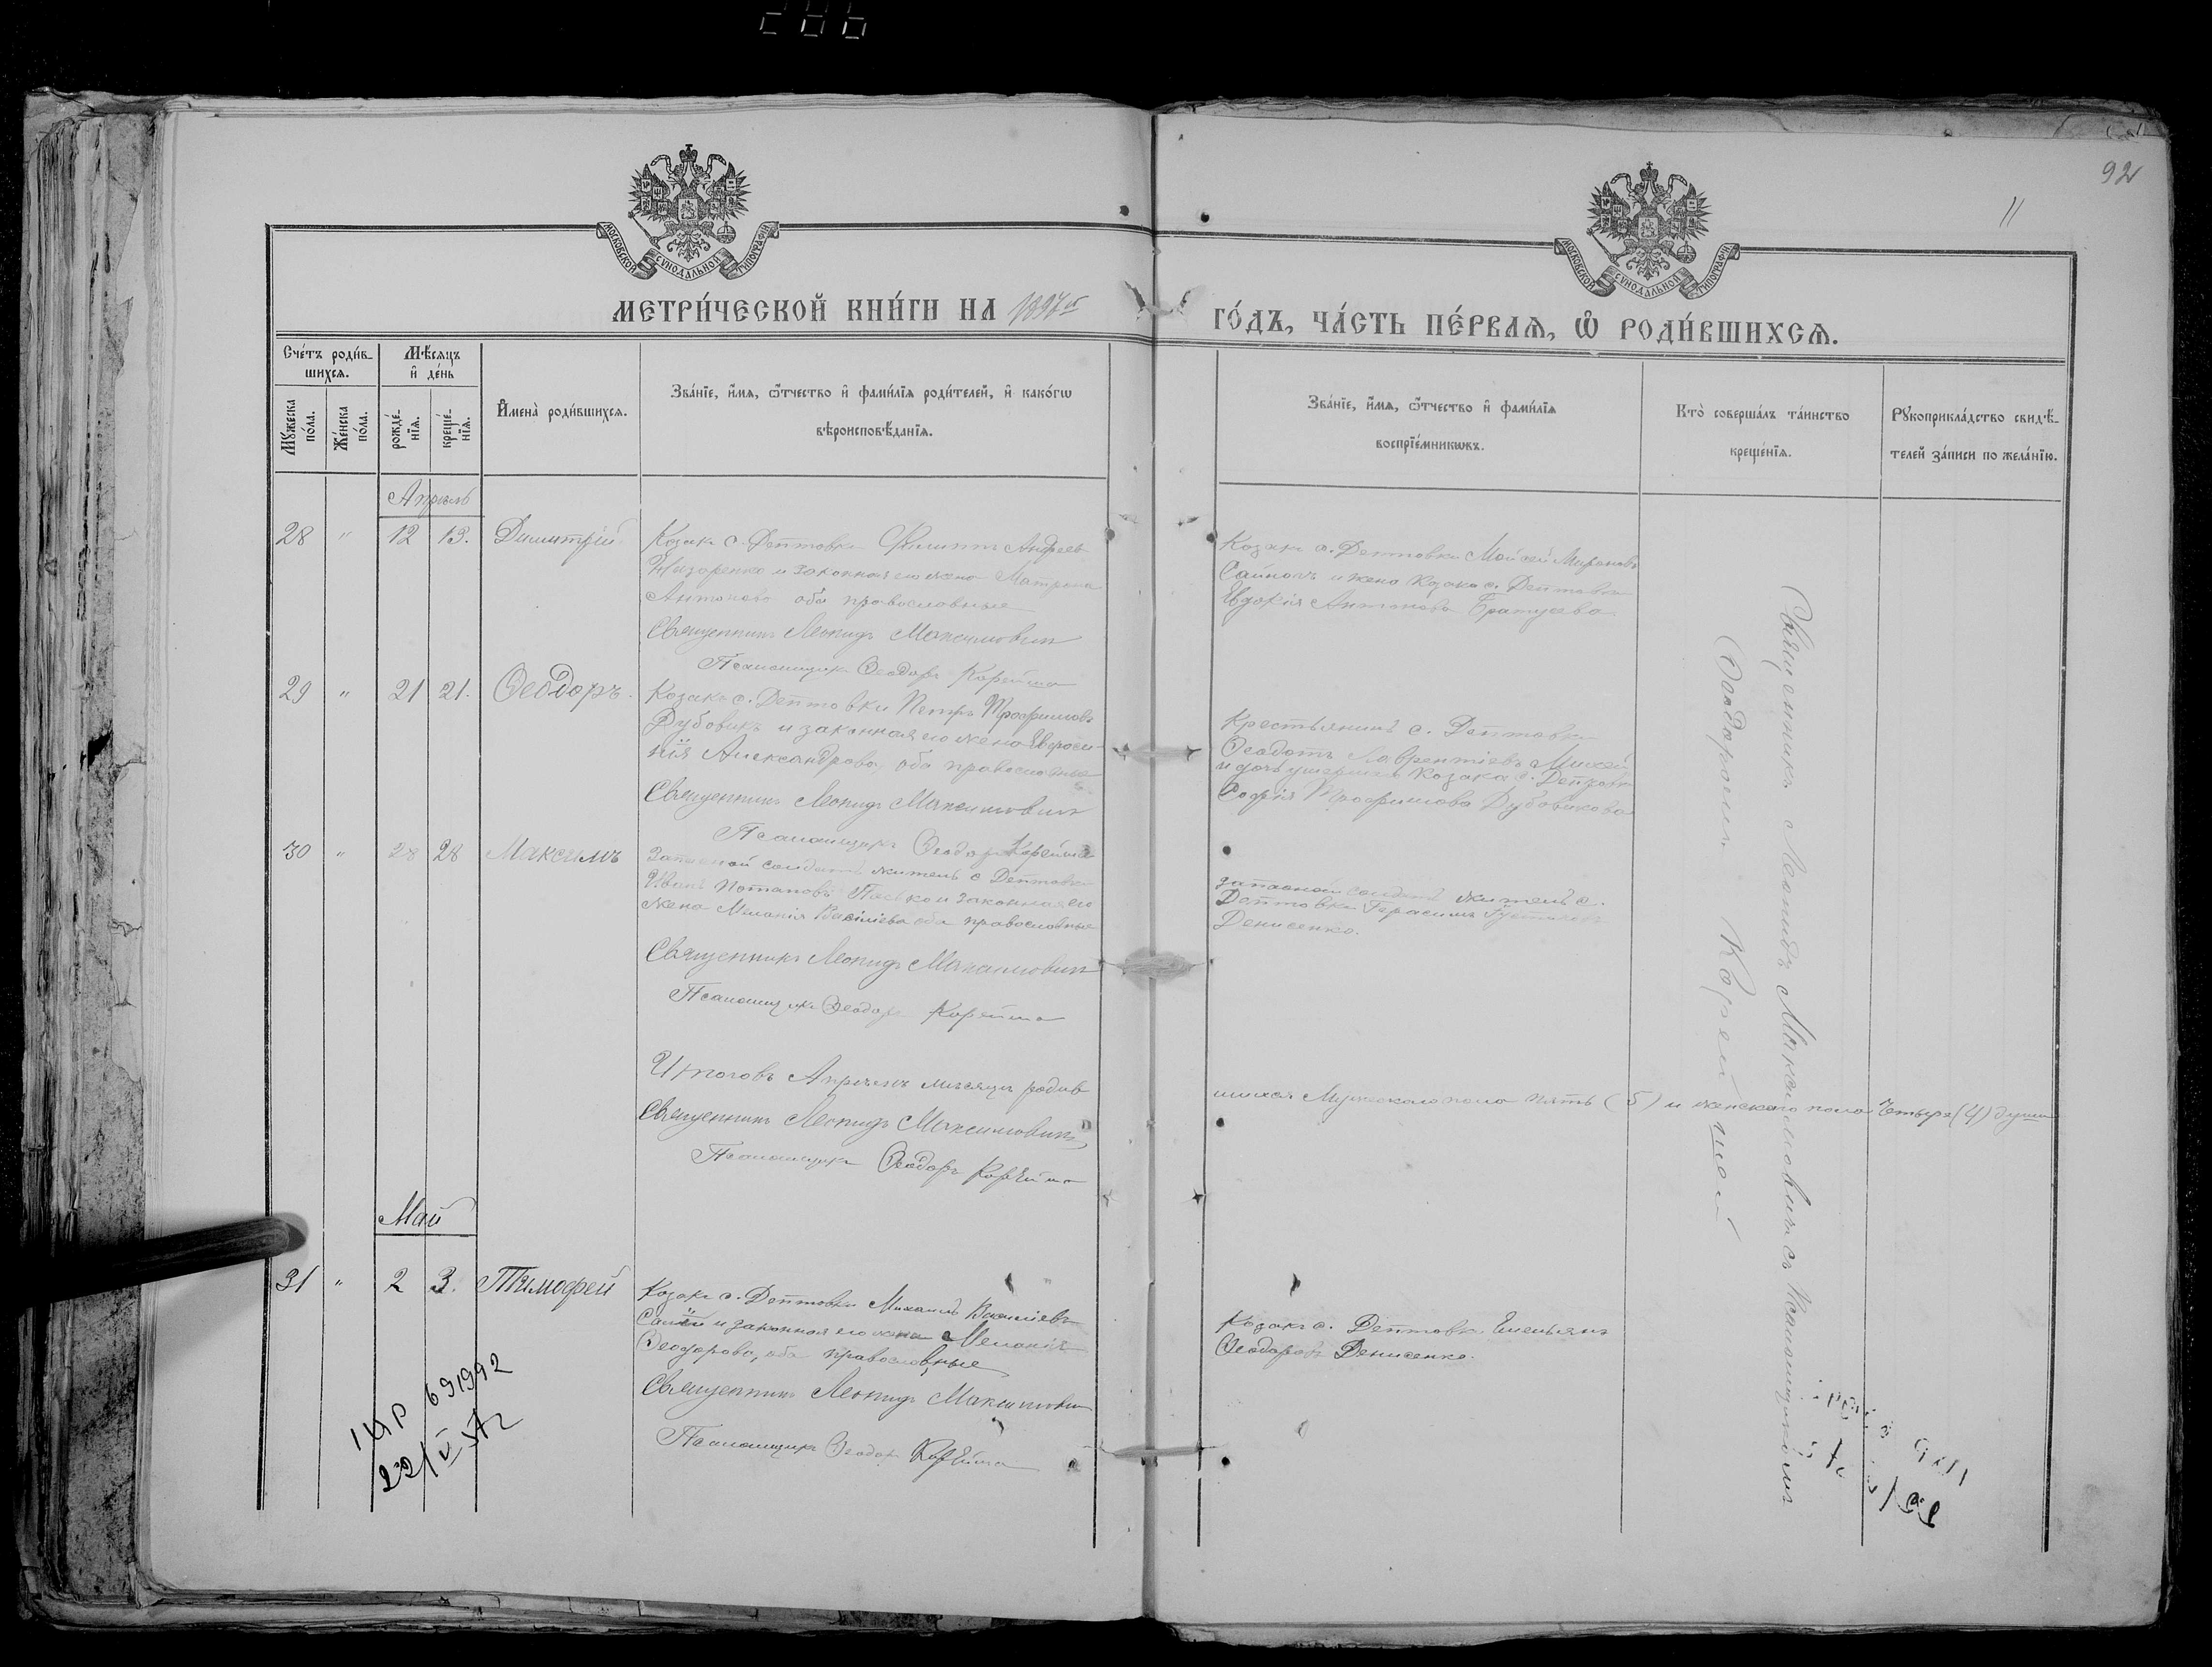 286
92
11
МОСКОВСКОЙ СУНОДАЛЬНОЙ ТИПОГРАФІИ
МОСКОВСКОЙ СУНОДАЛЬНОЙ ТИПОГРАФІИ
МЕТРИ́ЧЕСКОЙ КНИ́ГИ НА 1897й
ГО́ДЪ, ЧА́СТЬ ПЕ́РВАѦ, Ѽ РОДИ́ВШИХСѦ.
Сче́тъ роди́в-
шихсѧ.
Мѣ́сѧцъ
и҆ де́нь
Му́жеска
по́ла.
Же́нска
по́ла.
рожде́-
нїѧ.
креще́-
нїѧ.
И҆мена̀ роди́вшихсѧ.
Зва́нїе, и҆́мѧ, ѻ҆́тчество и҆ фами́лїѧ роди́телей, и҆ како́гѡ
вѣроисповѣ́данїѧ.
Зва́нїе, и҆́мѧ, ѻ҆́тчество и҆ фами́лїѧ
воспрїе́мникѡвъ.
Кто̀ соверша́лъ та́инство
креще́нїѧ.
Рꙋкоприкла́дство свидѣ́-
телей за́писи по жела́нїю.
Апрѣль
28 " 12 13. Димитрій
Козакъ с. Дептовки Филиппъ Андреевъ
и законная его жена Матрона
Антонова оба православные
Священникъ Леонидъ Максимовичъ
Псаломщикъ Ѳеодоръ Корейша
Козакъ с. Дептовки Мойсей Мироновъ
и жена Козака с. Дептовки
Евдокія Антонова
29 " 21 21. Ѳеодоръ.
Козакъ с. Дептовки Петръ Трофимовъ
Дубовикъ и законная его жена Евфроси-
нія Александрова, оба православные
Священникъ Леонидъ Максимовичъ
Псаломщикъ Ѳеодоръ Корейша
Крестьянинъ с. Дептовки
Ѳеодотъ Лаврентіевъ Михей
и дочь умершаго Козака с. Дептовки
Софія Трофимова Дубовикова
30 " 28 28 Максимъ
Запасной солдатъ житель с Дептовки
Иванъ Потаповъ и законная его
жена Меланія Василіева оба православные
Священникъ Леонидъ Максимовичъ
Псаломщикъ Ѳеодоръ Корейша
запасной солдатъ житель с.
Дептовки Герасимъ
Денисенко.
Итого въ Апрѣлѣ мѣсяцѣ родив
шихся Мужескаго пола пять (5) и женскаго пола Четыре (4) души
Священникъ Леонидъ Максимовичъ
Псаломщикъ Ѳеодоръ Корейша
Май
31 " 2 3. Тимофей
Козакъ с. Дептовки Михаилъ Василіевъ
и законная его жена Меланія
Ѳеодорова, оба православные
Священникъ Леонидъ Максимовичъ
Псаломщикъ Ѳеодоръ Корейша
Козакъ с. Дептовки Емельянъ
Ѳеодоровъ Денисенко.
Священникъ Леонидъ Максимовичъ съ Псаломщикомъ
Ѳеодоромъ Корейшей
691992